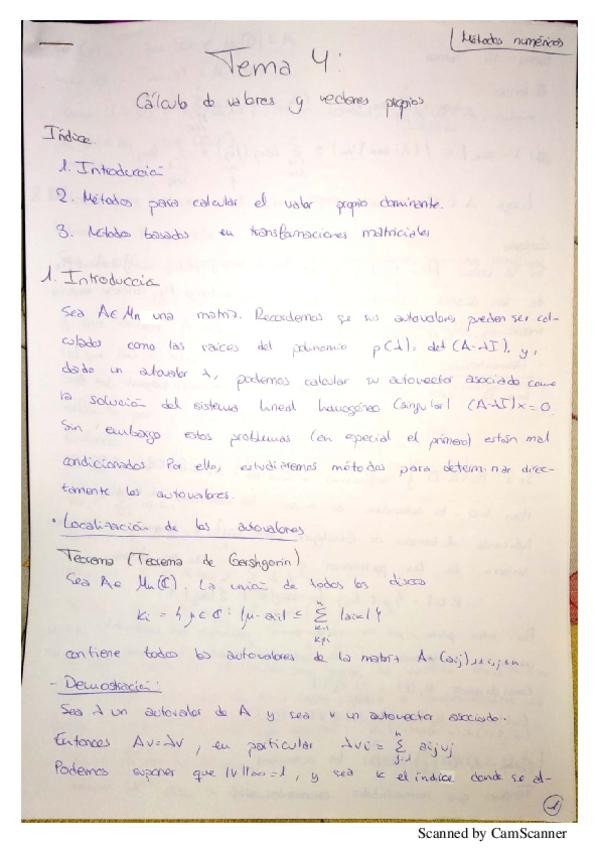 Métodos numéricos
Tema 4:
Cálculo de valores y vectores propios
Índice
1. Introducción
2. Métodos para calcular el valor propio dominante.
3. Métodos basados en transformaciones matriciales
1. Introducción
Sea A∈ Mn una matriz. Recordemos que sus autovalores pueden ser cal-
culados como las raíces del polinomio p(λ)= det (A-λI), y,
dado un autovalor λ, podemos calcular su autovector asociado como
la solución del sistema lineal homogéneo (singular) (A-λI)x=0.
Sin embargo estos problemas (en especial el primero) están mal
condicionados. Por ello, estudiaremos métodos para determinar direc-
tamente los autovalores.
· Localización de los autovalores
Teorema (Teorema de Gershgorin)
Sea A∈ Mn(ℂ). La unión de todos los discos
Ki = { μ∈ ℂ: |μ-aii| ≤ ∑ₖ₌₁,ₖ≠ᵢⁿ |aik| }
contiene todos los autovalores de la matriz A=(aij)1≤i,j≤n.
- Demostración:
Sea λ un autovalor de A y sea v un autovector asociado.
Entonces Av=λv, en particular λvi = ∑ⱼ₌₁ⁿ aijvj
Podemos suponer que ||v||∞=1, y sea k el índice donde se al-
1
Scanned by CamScanner